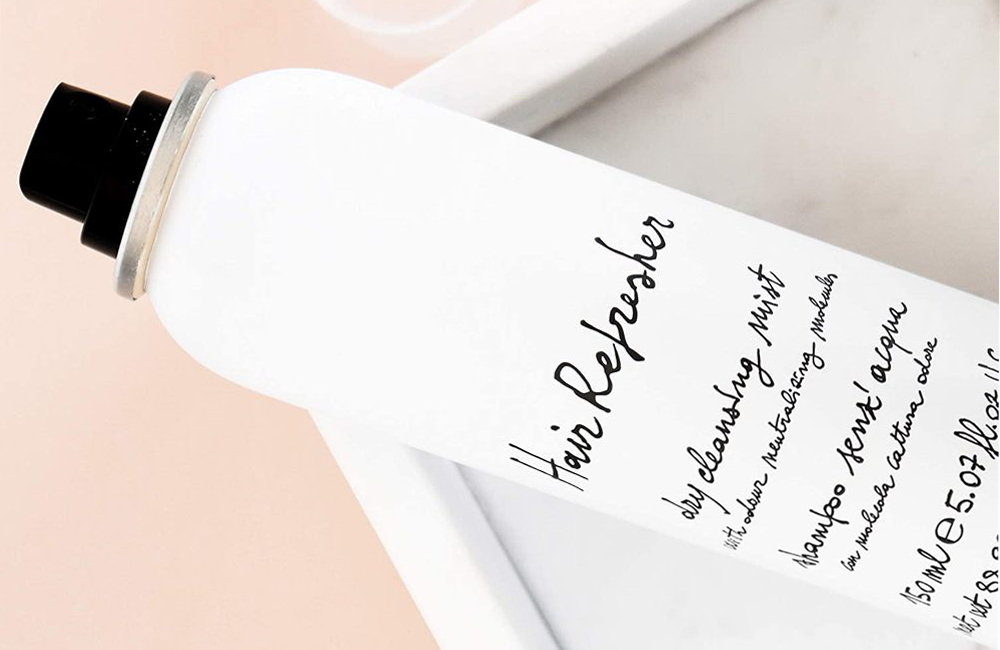 Hair Refresher
dry cleansing mist
with odour neutralizing molecules
shampoo senz' acqua
con molecola cattura odore
150 ml e 5.07 fl.oz
net wt